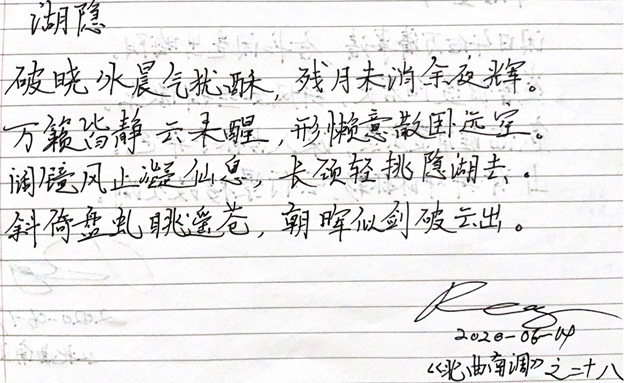 湖隐
破晓冰晨气犹酥，残月未消余夜辉。
万籁皆静云未醒，形懒意散困远空。
阔镜风止凝仙息，长颈轻挑隐湖去。
斜倚盘虬眺遥苍，朝晖似剑破云出。
2020-06-04
《北曲南调》之二十八